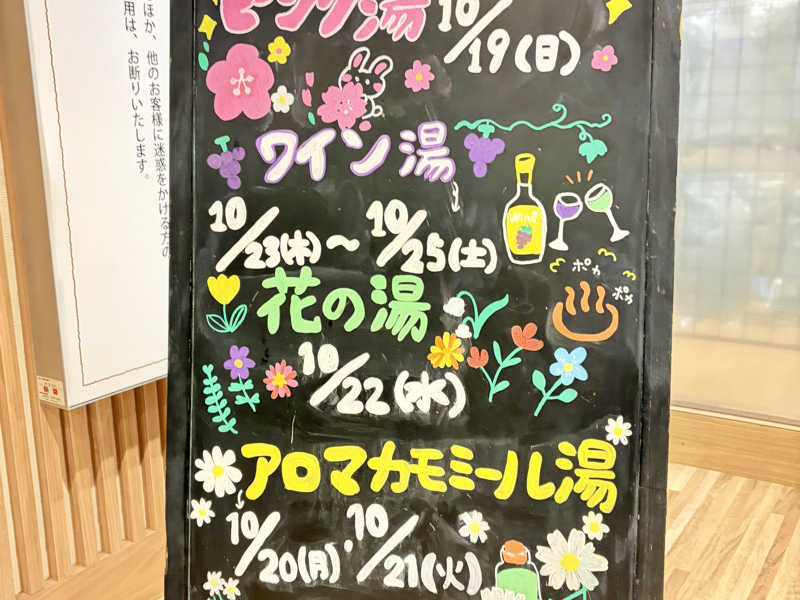 ピンク湯
10/19(日)
ワイン湯
10/23(木)～10/25(土)
wine
ポカ
ポカ
花の湯
10/22(水)
アロマカモミール湯
10/20(月)、10/21(火)
ほか、他のお客様に迷惑をかける方の
用は、お断りいたします。